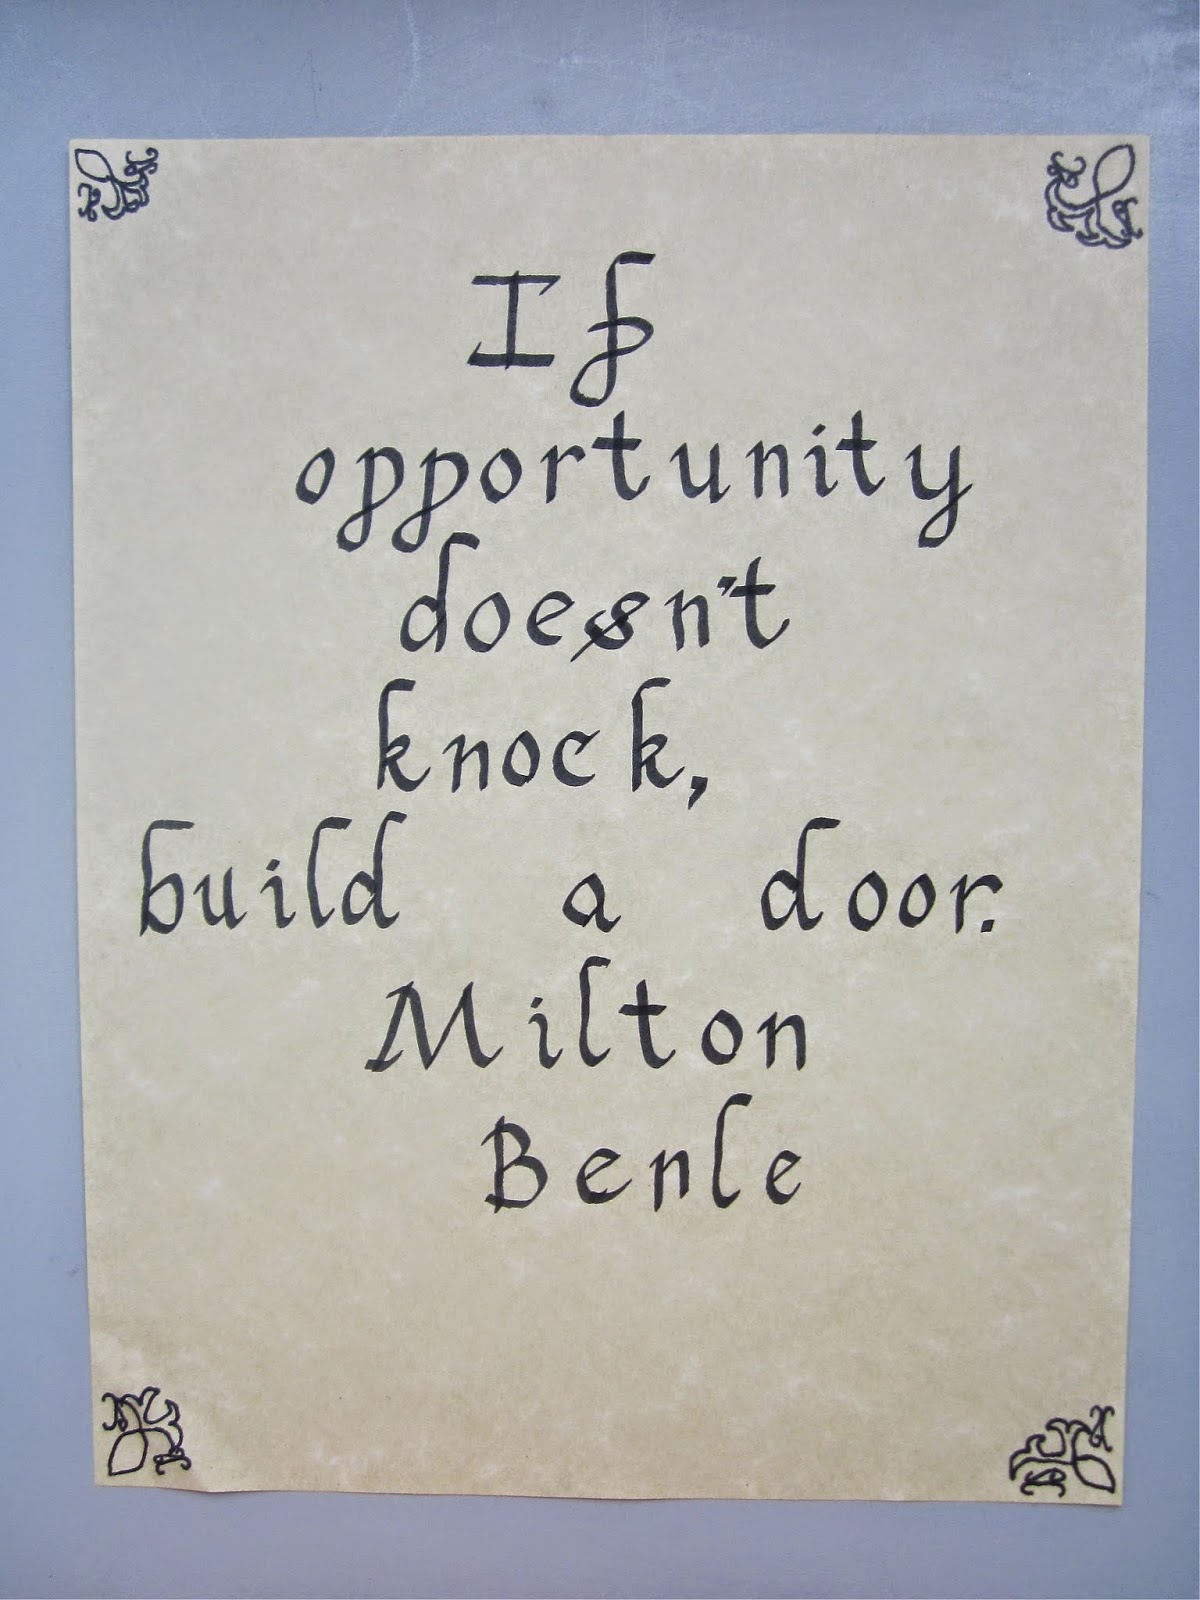 If
opportunity
doesn't
knock,
build a door.
Milton
Berle